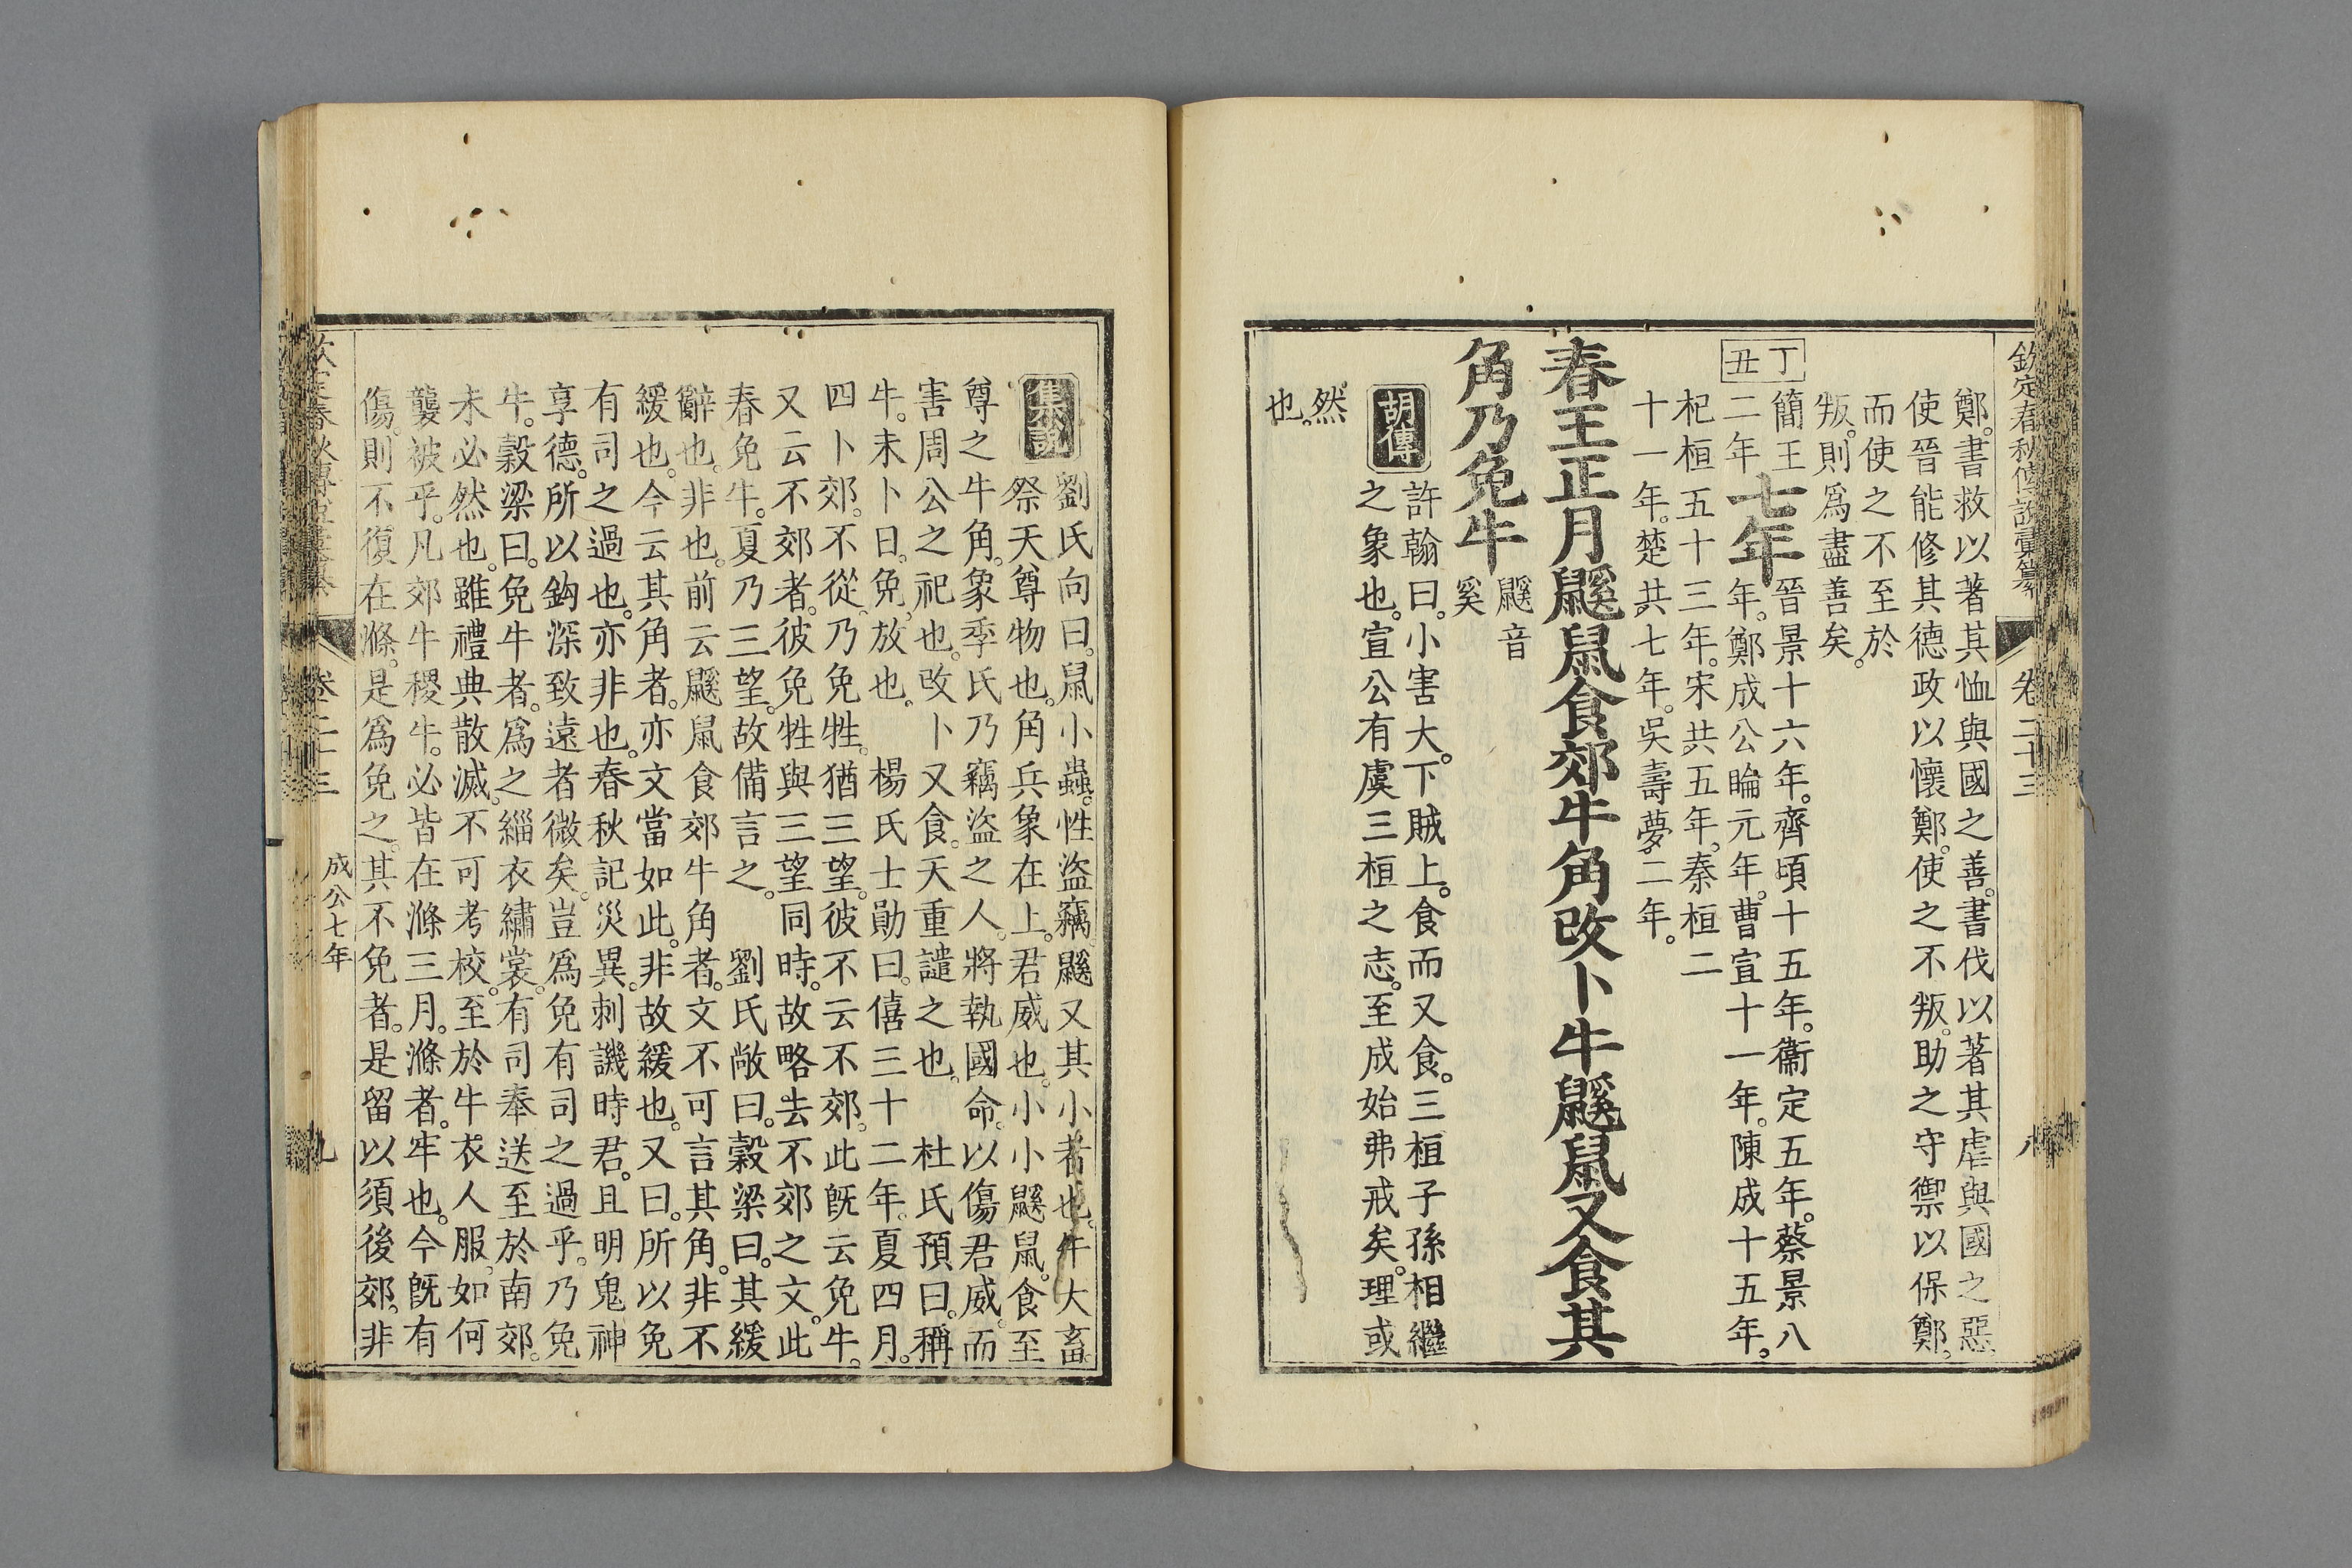 欽定春秋傳說彙纂
卷二十三
鄭書救以著其恤與國之善書伐以著其虐與國之惡
使晉能修其德政以懷鄭使之不叛助之守禦以保鄭
而使之不至於
叛則爲盡善矣
丁丑
七年
簡王二年
晉景十六年齊頃十五年衞定五年蔡景八
年鄭成公睔元年曹宣十一年陳成十五年
杞桓五十三年宋共五年秦桓二
十一年楚共七年吳壽夢二年
春王正月鼷鼠食郊牛角改卜牛鼷鼠又食其
角乃免牛
鼷音
奚
胡傳
許翰曰小害大下賊上食而又食三桓子孫相繼
之象也宣公有虞三桓之志至成始弗戒矣理或
然
也
集說
劉氏向曰鼠小蟲性盜竊鼷又其小者也牛大畜
祭天尊物也角兵象在上君威也小小鼷鼠食至
尊之牛角象季氏乃竊盜之人將執國命以傷君威而
害周公之祀也改卜又食天重譴之也 杜氏預曰稱
牛未卜日免放也 楊氏士勛曰僖三十二年夏四月
四卜郊不從乃免牲猶三望彼不云不郊此旣云免牛
又云不郊者彼免牲與三望同時故略去不郊之文此
春免牛夏乃三望故備言之 劉氏敞曰穀梁曰其緩
辭也非也前云鼷鼠食郊牛角者文不可言其角非不
緩也今云其角者亦文當如此非故緩也又曰所以免
有司之過也亦非也春秋記災異刺譏時君且明鬼神
享德所以鈎深致遠者微矣豈爲免有司之過乎乃免
牛穀梁曰免牛者爲之緇衣纁裳有司奉送至於南郊
未必然也雖禮典散滅不可考校至於牛衣人服如何
襲被乎凡郊牛稷牛必皆在滌三月滌者牢也今旣有
傷則不復在滌是爲免之其不免者是留以須後郊非
卷二十三
成公七年
九